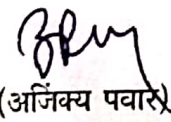 (अजिंक्य पवार)